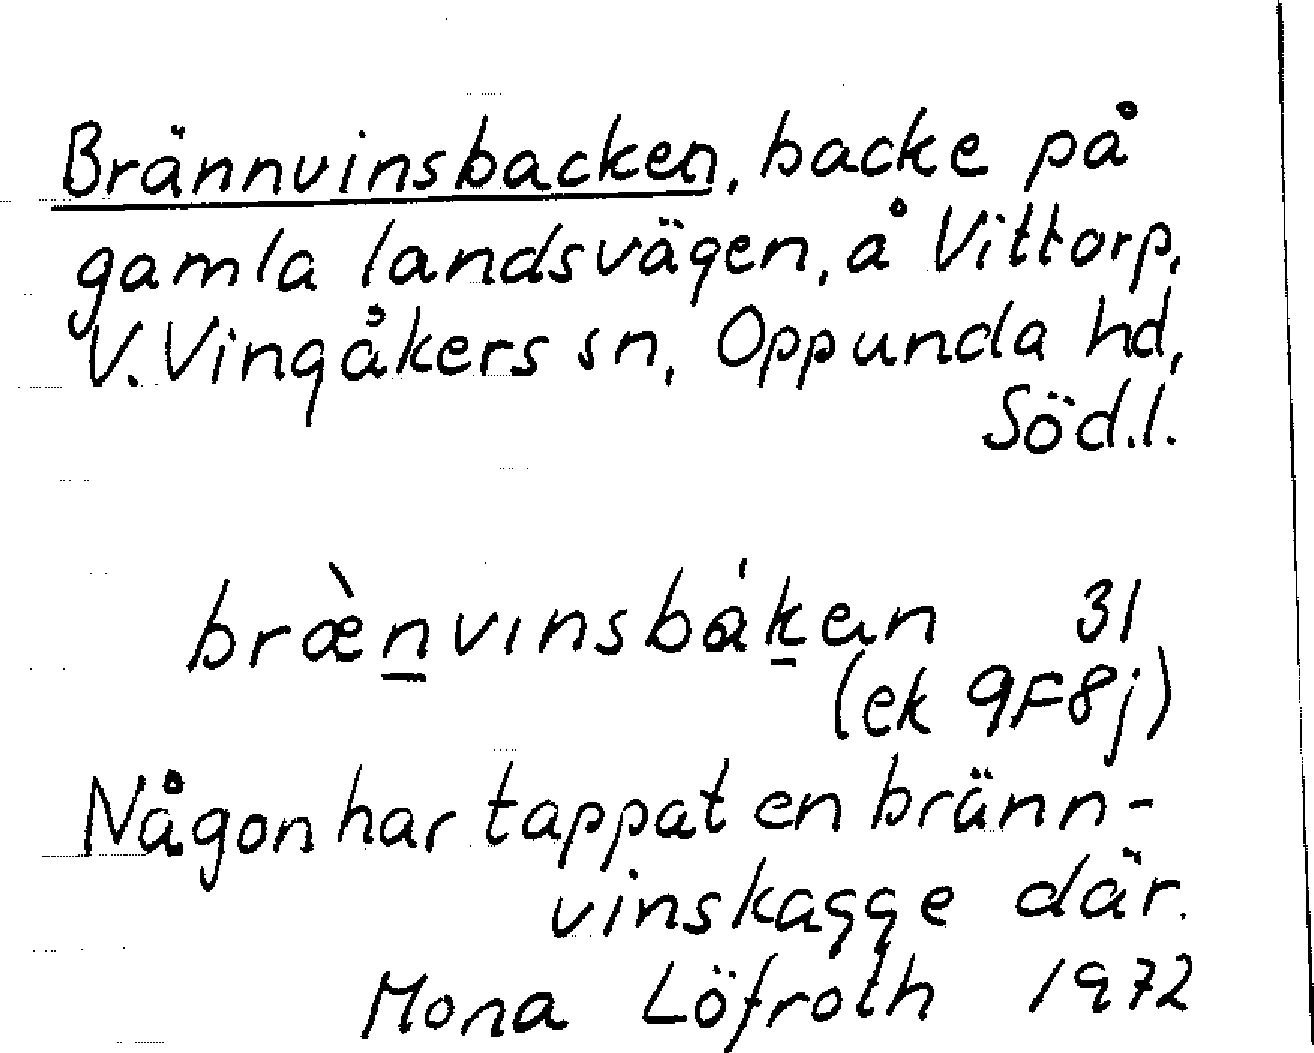 Brännvinsbacken, backe på
gamla landsvägen, å Vittorp,
V. Vingåkers sn, Oppunda hd,
Söd.l.
bræ̀n̲vınsbák̲en 31
(ek 9F8j)
Någon har tappat en bränn-
vinskagge där.
Mona Löfroth 1972